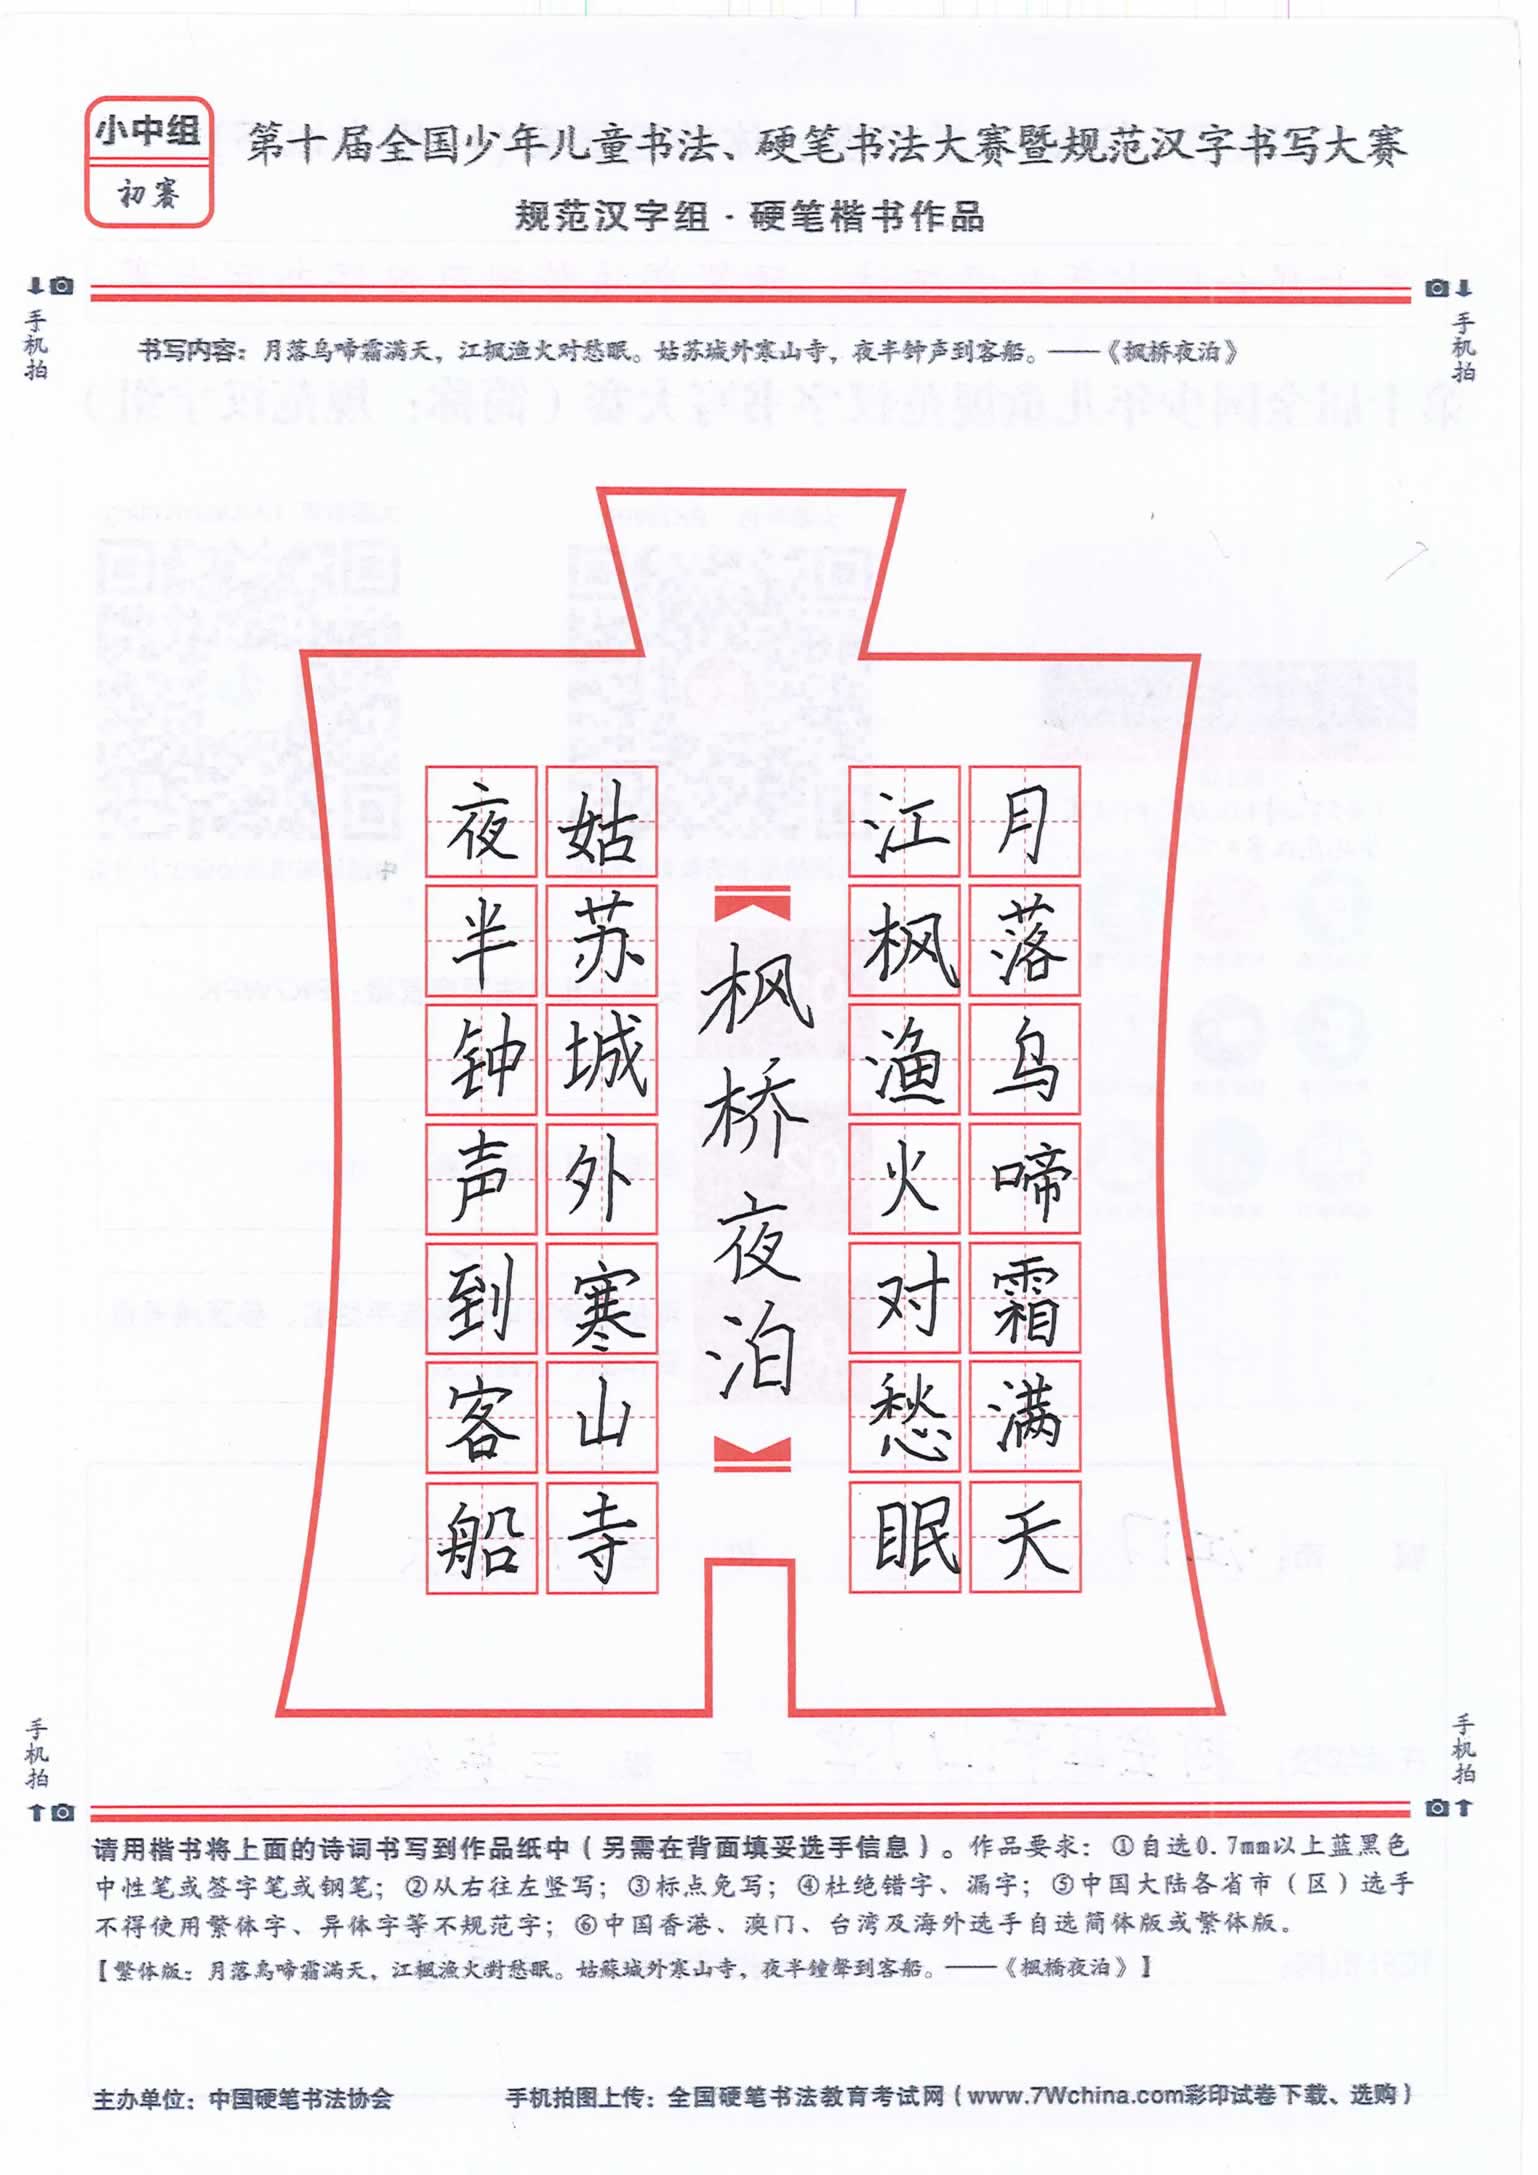 小中组
初赛
第十届全国少年儿童书法、硬笔书法大赛暨规范汉字书写大赛
规范汉字组·硬笔楷书作品
手机拍
手机拍
书写内容：月落乌啼霜满天，江枫渔火对愁眠。姑苏城外寒山寺，夜半钟声到客船。——《枫桥夜泊》
月落乌啼霜满天
江枫渔火对愁眠
枫桥夜泊
姑苏城外寒山寺
夜半钟声到客船
手机拍
手机拍
请用楷书将上面的诗词书写到作品纸中（另需在背面填妥选手信息）。作品要求：①自选0.7mm以上蓝黑色
中性笔或签字笔或钢笔；②从右往左竖写；③标点免写；④杜绝错字、漏字；⑤中国大陆各省市（区）选手
不得使用繁体字、异体字等不规范字；⑥中国香港、澳门、台湾及海外选手自选简体版或繁体版。
【繁体版：月落烏啼霜滿天，江楓漁火對愁眠。姑蘇城外寒山寺，夜半鐘聲到客船。——《楓橋夜泊》】
主办单位：中国硬笔书法协会
手机拍图上传：全国硬笔书法教育考试网（www.7Wchina.com彩印试卷下载、选购）